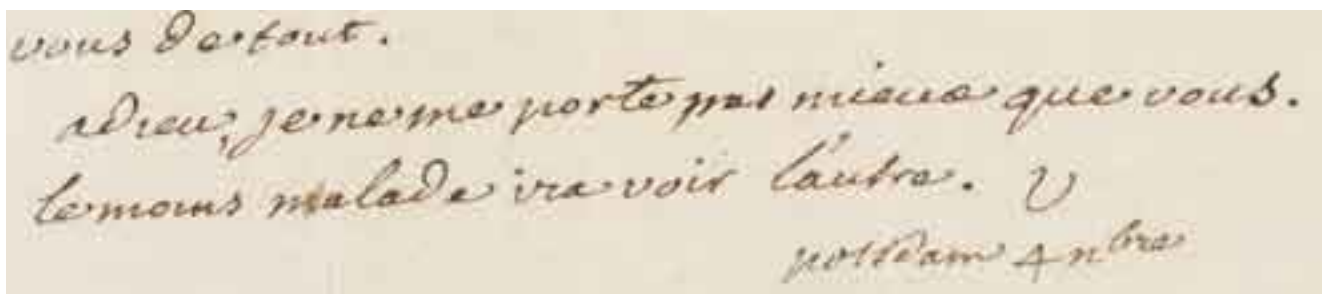 vous de tout.
adieu, je ne me porte pas mieux que vous.
le moins malade ira voir l'autre. V
potsdam 4 nbre